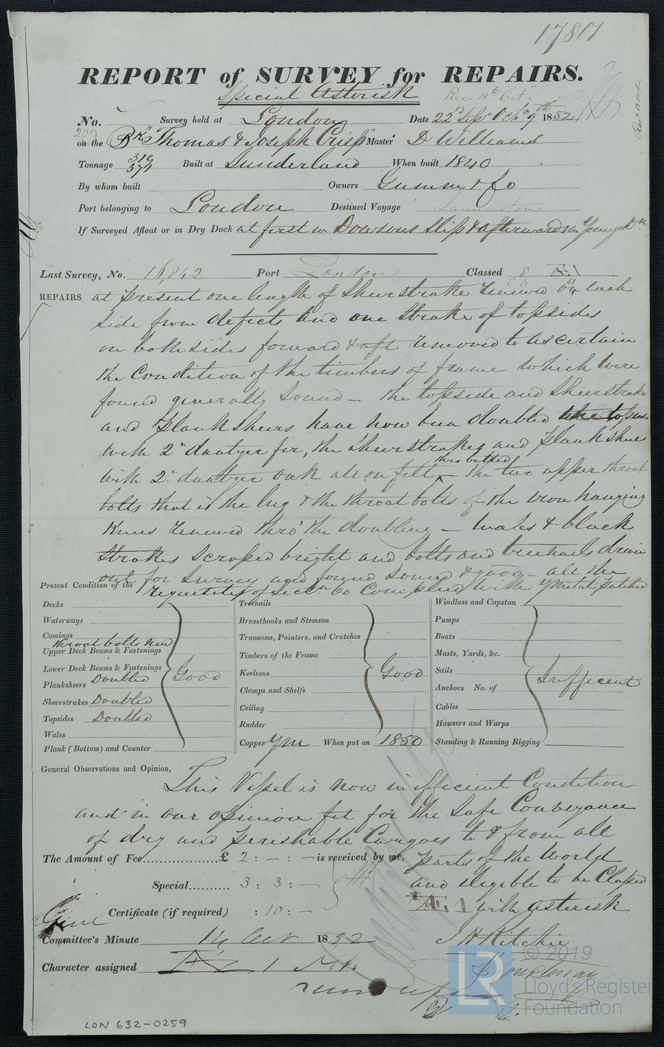 17801
REPORT of SURVEY for REPAIRS.
Special Asterisk
Rec 13th Oct
No. Survey held at London Date 22 Sept Octr 9th 1852
on the Bk Thomas & Joseph Crisp Master D Williams
Tonnage 316 374 Built at Sunderland When built 1840
By whom built Owners Gumm & Co
Port belonging to London Destined Voyage
If Surveyed Afloat or in Dry Dock at first in Dowsons Slip & afterwards in
Last Survey, No. 16,842 Port London Classed 8 Æ1
REPAIRS at present one length of Sheerstrake renewed on each
side from defects and one Strake of topsides
on both sides forward & aft removed to ascertain
the Condition of the timbers of frame which were
found generally Sound – the topside and Sheerstrake
and Planksheers have now been doubled
with 2 in dantzic fir, the Sheerstrakes and Planksheers
with 2 in dantzic oak all on felt thro bolted – the two upper throat
bolts that is the lug & the throat bolts of the iron hanging
Knees renewed thro' the doubling – wales & black
Strakes scraped bright and bolts and treenails driven
out for Survey and found Sound & good – all the
requisites of Sectn 60 Complied with Ymetal
Present Condition of the
Decks
Waterways
Comings
throat bolts new
Upper Deck Beams & Fastenings
Lower Deck Beams & Fastenings
Planksheers Doubled
Sheerstrakes Doubled
Topsides Doubled
Wales
Plank (Bottom) and Counter
Good
Treenails
Breasthooks and Stemson
Transoms, Pointers, and Crutches
Timbers of the Frame
Keelsons
Clamps and Shelfs
Ceiling
Rudder
Copper YM When put on 1850
Good
Windlass and Capstan
Pumps
Boats
Masts, Yards, &c.
Sails
Anchors No. of
Cables
Hawsers and Warps
Standing & Running Rigging
General Observations and Opinion,
This Vessel is now in efficient Condition
and in our opinion fit for the Safe Conveyance
of dry and perishable Cargoes to & from all
parts of the World
and eligible to be Classed
Æ 1 with asterisk
The Amount of Fee............... £ 2 : – : – is received by me,
Special....... 3 : 3 : –
Certificate (if required) : 10 : –
J H Ritchie
Committee's Minute 14 Oct 1852
Character assigned Æ 1
LON 632-0259
LR
© 2019
Lloyd's Register
Foundation